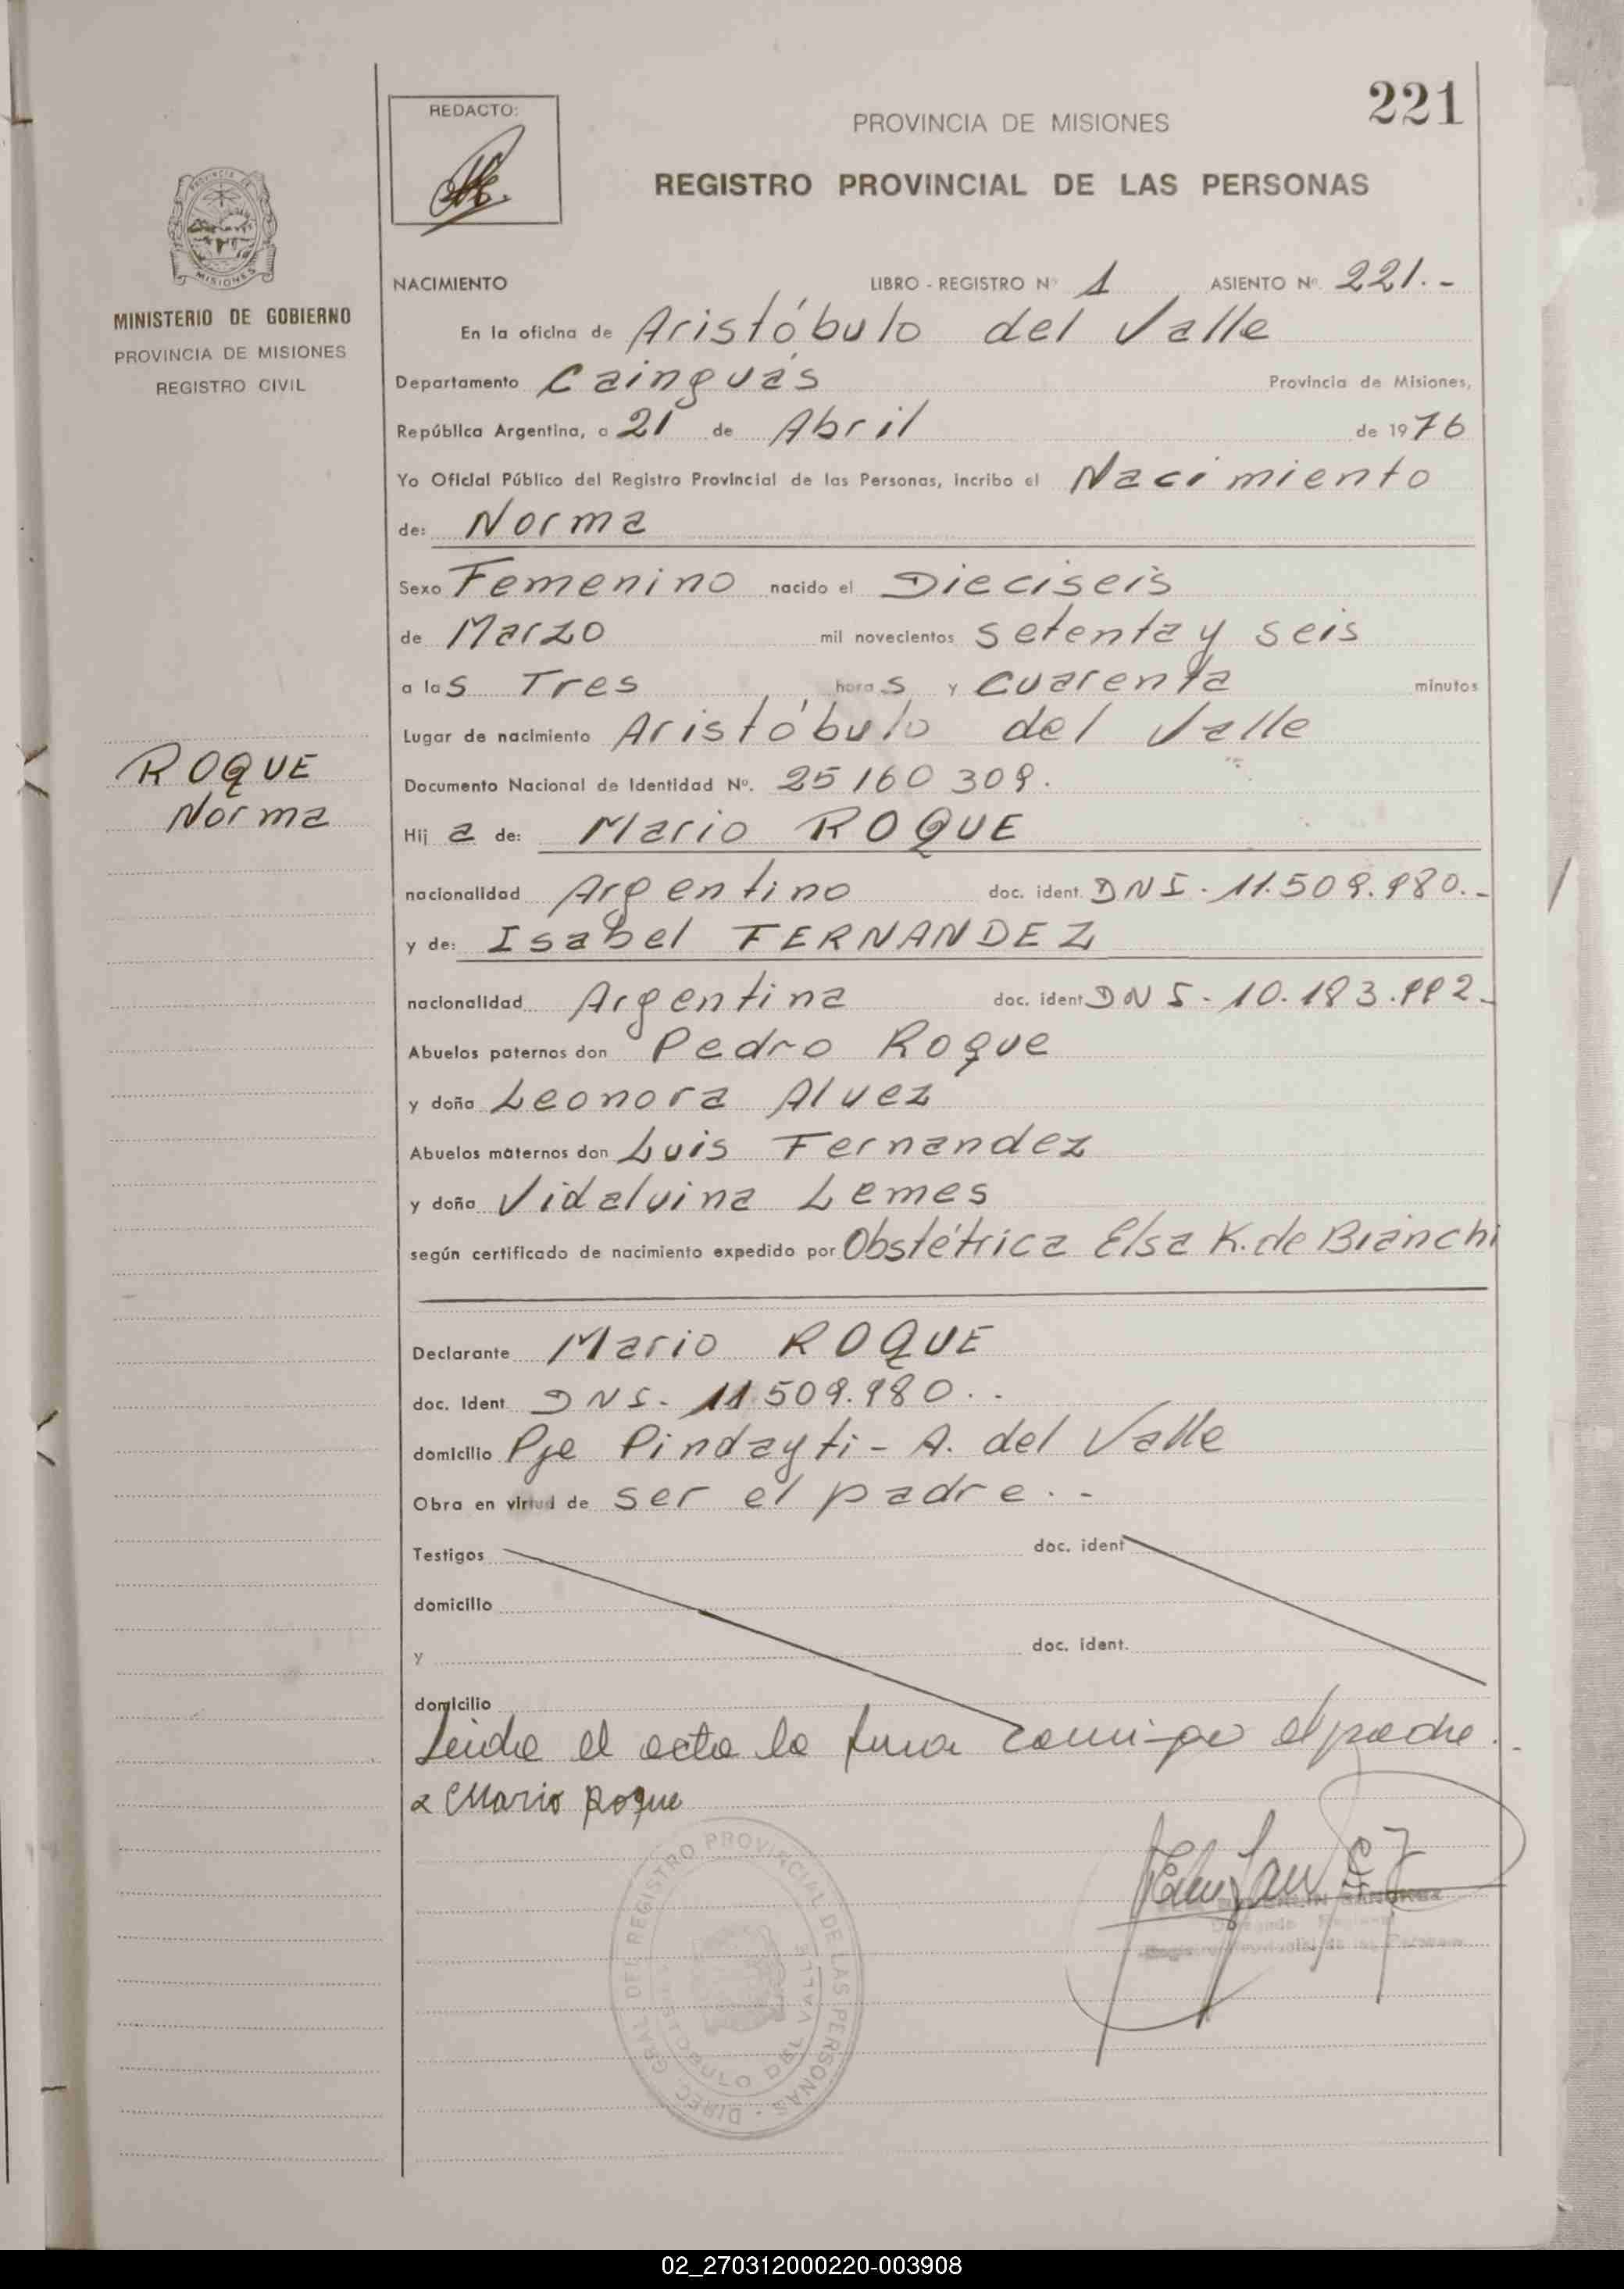 221
REDACTO:
PROVINCIA DE MISIONES
REGISTRO PROVINCIAL DE LAS PERSONAS
PROVINCIA DE
MISIONES
MINISTERIO DE GOBIERNO
PROVINCIA DE MISIONES
REGISTRO CIVIL
NACIMIENTO LIBRO - REGISTRO Nº 1 ASIENTO Nº 221.-
En la oficina de Aristóbulo del Valle
Departamento Cainguás Provincia de Misiones,
República Argentina, a 21 de Abril de 1976
Yo Oficial Público del Registro Provincial de las Personas, incribo el Nacimiento
de: Norma
Sexo Femenino nacido el Dieciseis
de Marzo mil novecientos setenta y seis
a las Tres horas y cuarenta minutos
Lugar de nacimiento Aristóbulo del Valle
ROQUE
Norma
Documento Nacional de Identidad Nº. 25 160 309.
Hija de: Mario ROQUE
nacionalidad Argentino doc. ident. DNI. 11.509.980.-
y de: Isabel FERNANDEZ
nacionalidad Argentina doc. ident DNI-
Abuelos paternos don Pedro Roque
y doña Leonora Alvez
Abuelos maternos don Luis Fernandez
y doña Vidalvina Lemes
según certificado de nacimiento expedido por Obstétrica Elsa K. de Bianchi
Declarante Mario ROQUE
doc. Ident DNI. 11.509.980..-
domicilio Pje Pindayti - A. del Valle
Obra en virtud de ser el padre.-
Testigos doc. ident
domicilio
y doc. ident.
domicilio
Leida el acta la firma conmigo el padre.-
Mario Roque
DIREC. GRAL. DEL REGISTRO PROVINCIAL DE LAS PERSONAS
ARISTOBULO DEL VALLE
SANCHEZ
Registro Provincial de las Personas
02_270312000220-003908